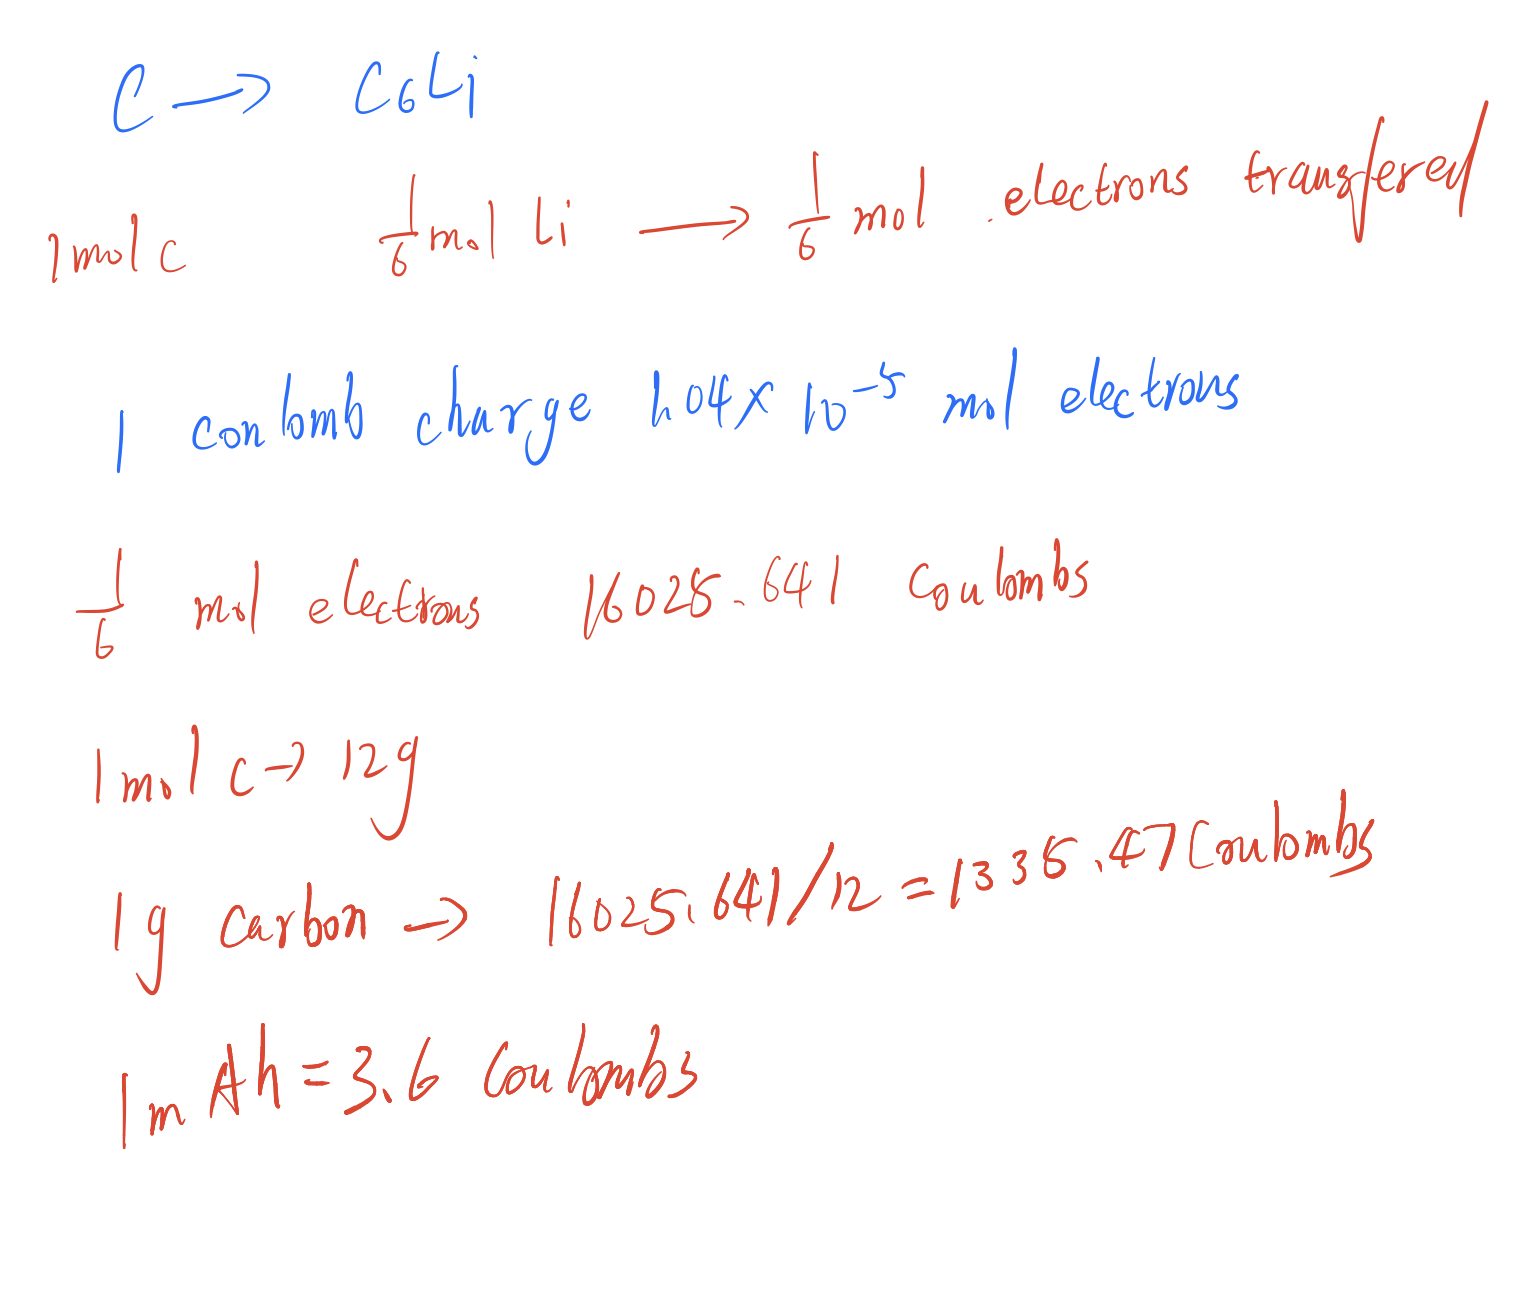 C → C6Li
1mol C 1/6 mol Li → 1/6 mol electrons transfered
1 conlomb charge 1.04 x 10^-5 mol electrons
1/6 mol electrons 16025.641 Coulombs
1mol C → 12g
1g carbon → 16025.641/12 = 1335.47 Coulombs
1mAh = 3.6 Coulombs